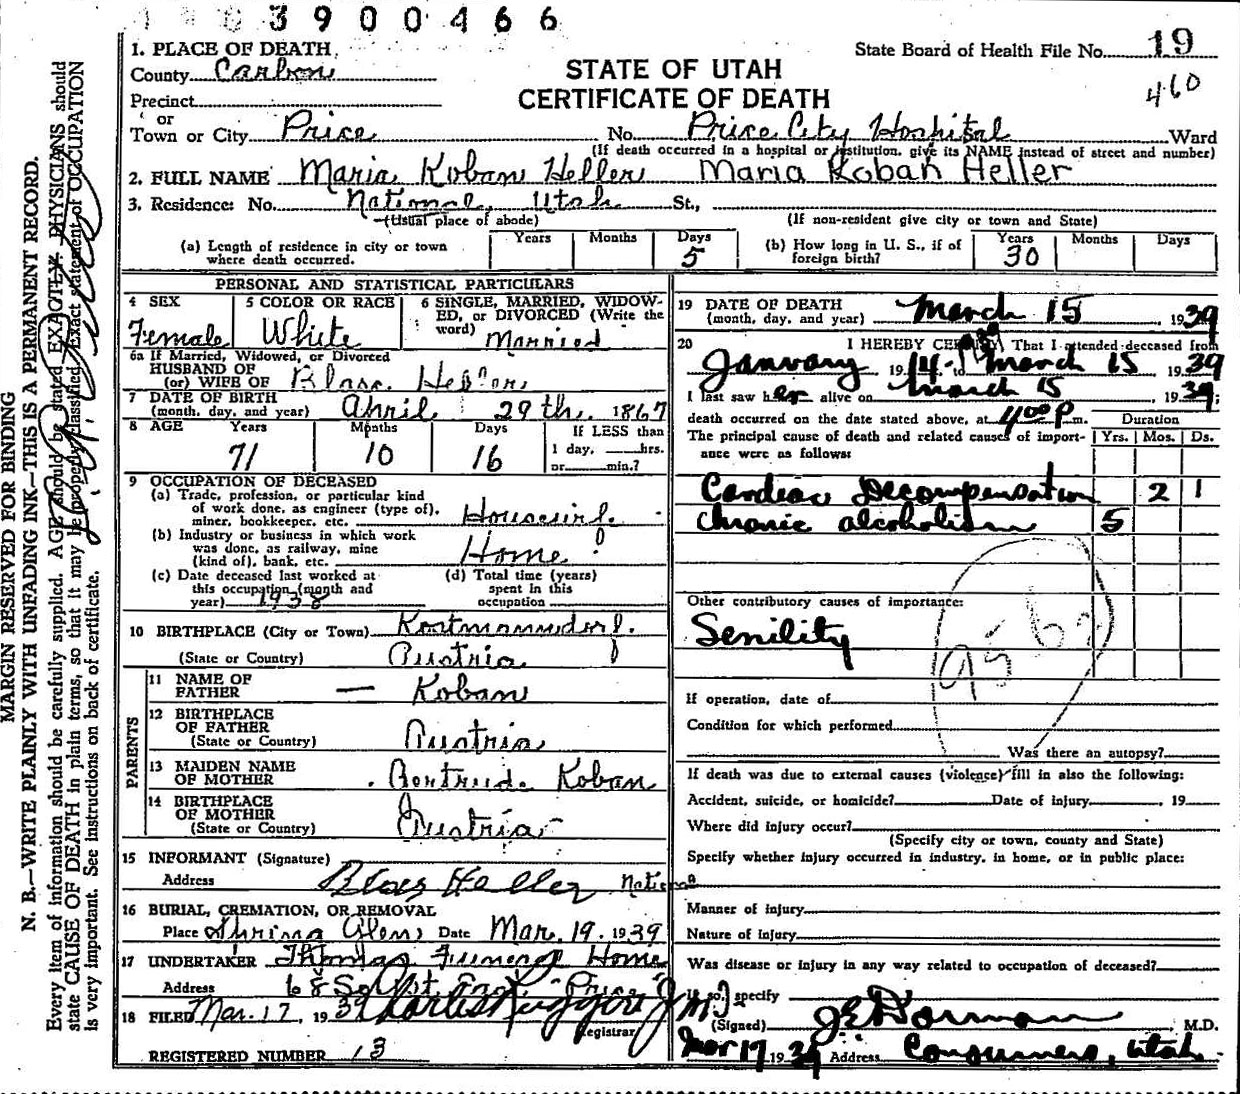 3900466
1. PLACE OF DEATH
State Board of Health File No. 19
County Carbon
STATE OF UTAH
460
Precinct
CERTIFICATE OF DEATH
or
Town or City Price No. Price City Hospital Ward
(If death occurred in a hospital or institution, give its NAME instead of street and number)
2. FULL NAME Maria Koban Heller Maria Koban Heller
3. Residence: No. National, Utah St.,
(Usual place of abode) (If non-resident give city or town and State)
(a) Length of residence in city or town where death occurred. Years Months Days 5
(b) How long in U. S., if of foreign birth? Years 30 Months Days
PERSONAL AND STATISTICAL PARTICULARS
4 SEX Female
5 COLOR OR RACE White
6 SINGLE, MARRIED, WIDOWED, or DIVORCED (Write the word) Married
6a If Married, Widowed, or Divorced
HUSBAND OF
(or) WIFE OF Heller
7 DATE OF BIRTH
(month, day, and year) April 29th, 1867
8 AGE Years 71 Months 10 Days 16 If LESS than 1 day, hrs. or min.?
9 OCCUPATION OF DECEASED
(a) Trade, profession, or particular kind
of work done, as engineer (type of),
miner, bookkeeper, etc. Housewife
(b) Industry or business in which work
was done, as railway, mine
(kind of), bank, etc. Home
(c) Date deceased last worked at this occupation (month and year) 1938
(d) Total time (years) spent in this occupation
10 BIRTHPLACE (City or Town)
(State or Country) Austria
PARENTS
11 NAME OF FATHER — Koban
12 BIRTHPLACE OF FATHER
(State or Country) Austria
13 MAIDEN NAME OF MOTHER Koban
14 BIRTHPLACE OF MOTHER
(State or Country) Austria
15 INFORMANT (Signature)
Address Blas Heller
16 BURIAL, CREMATION, OR REMOVAL
Place Date Mar. 19. 1939
17 UNDERTAKER Funeral Home
Address Price
18 FILED Mar. 17, 1939
Registrar
REGISTERED NUMBER 13
19 DATE OF DEATH
(month, day, and year) March 15 1939
20 I HEREBY CERTIFY That I attended deceased from
January 14 to March 15 1939
I last saw her alive on March 15, 1939;
death occurred on the date stated above, at 4 00 P. m.
Duration
The principal cause of death and related causes of importance were as follows: Yrs. Mos. Ds.
Cardiac Decompensation 2 1
Chronic alcoholism 5
Other contributory causes of importance:
Senility
If operation, date of
Condition for which performed
Was there an autopsy?
If death was due to external causes (violence) fill in also the following:
Accident, suicide, or homicide? Date of injury , 19
Where did injury occur?
(Specify city or town, county and State)
Specify whether injury occurred in industry, in home, or in public place:
Manner of injury
Nature of injury
Was disease or injury in any way related to occupation of deceased?
If so, specify
(Signed) J E Dorman, M.D.
Mar 17 1939 Address Consumers, Utah
MARGIN RESERVED FOR BINDING
N. B.—WRITE PLAINLY WITH UNFADING INK—THIS IS A PERMANENT RECORD.
Every item of information should be carefully supplied. AGE should be stated EXACTLY. PHYSICIANS should
state CAUSE OF DEATH in plain terms, so that it may be properly classified. Exact statement of OCCUPATION
is very important. See instructions on back of certificate.